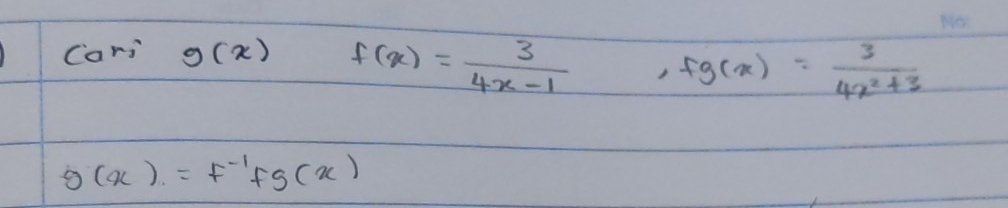 No.
) Cari g(x) f(x) = 3/(4x-1) , fg(x) = 3/(4x²+3)
g(x) = f⁻¹fg(x)